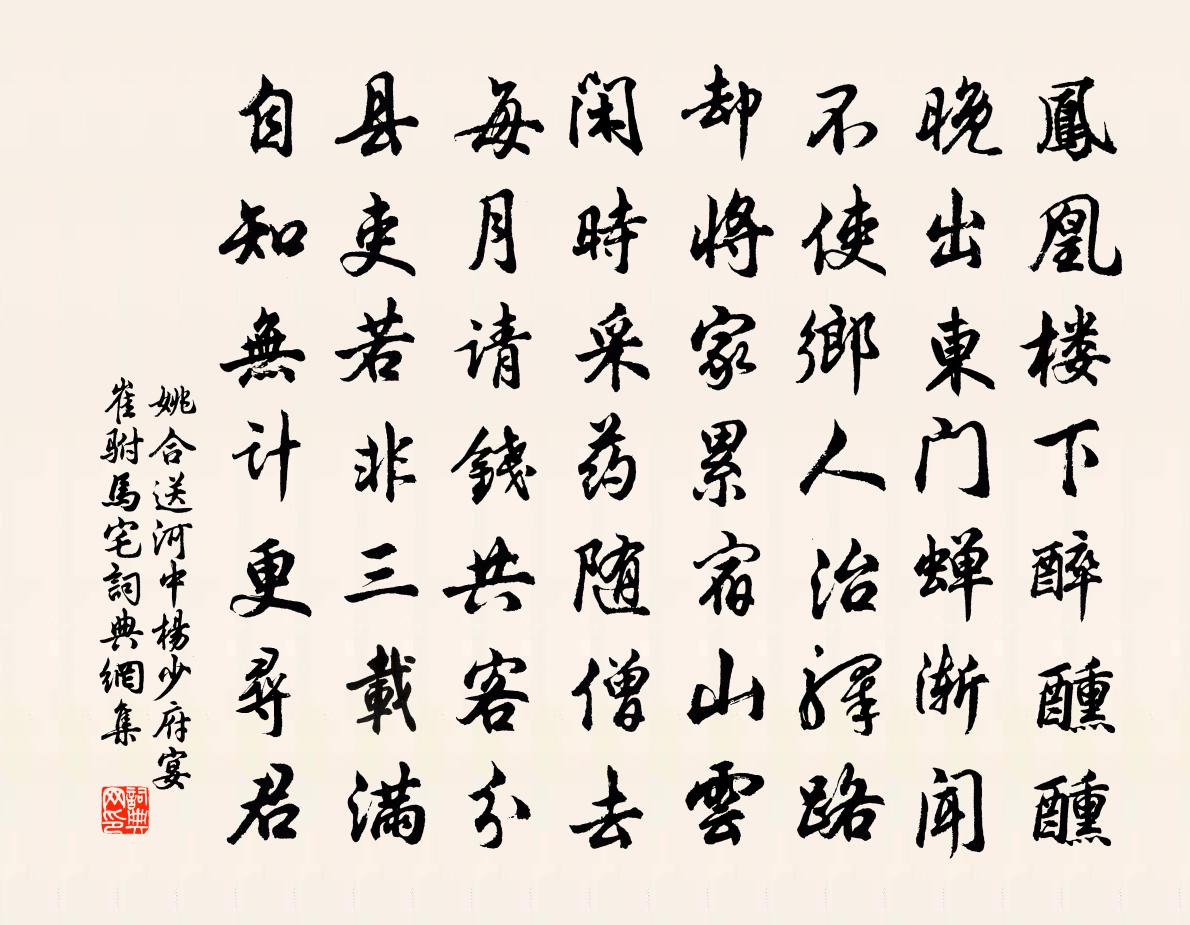 鳳凰楼下醉醺醺
晚出東门蝉渐闻
不使鄉人治驿路
却将家累宿山雲
闲時采药随僧去
每月请錢共客分
县吏若非三載满
自知無计更尋君
姚合送河中楊少府宴
崔駙馬宅詞典網集
詞典网印